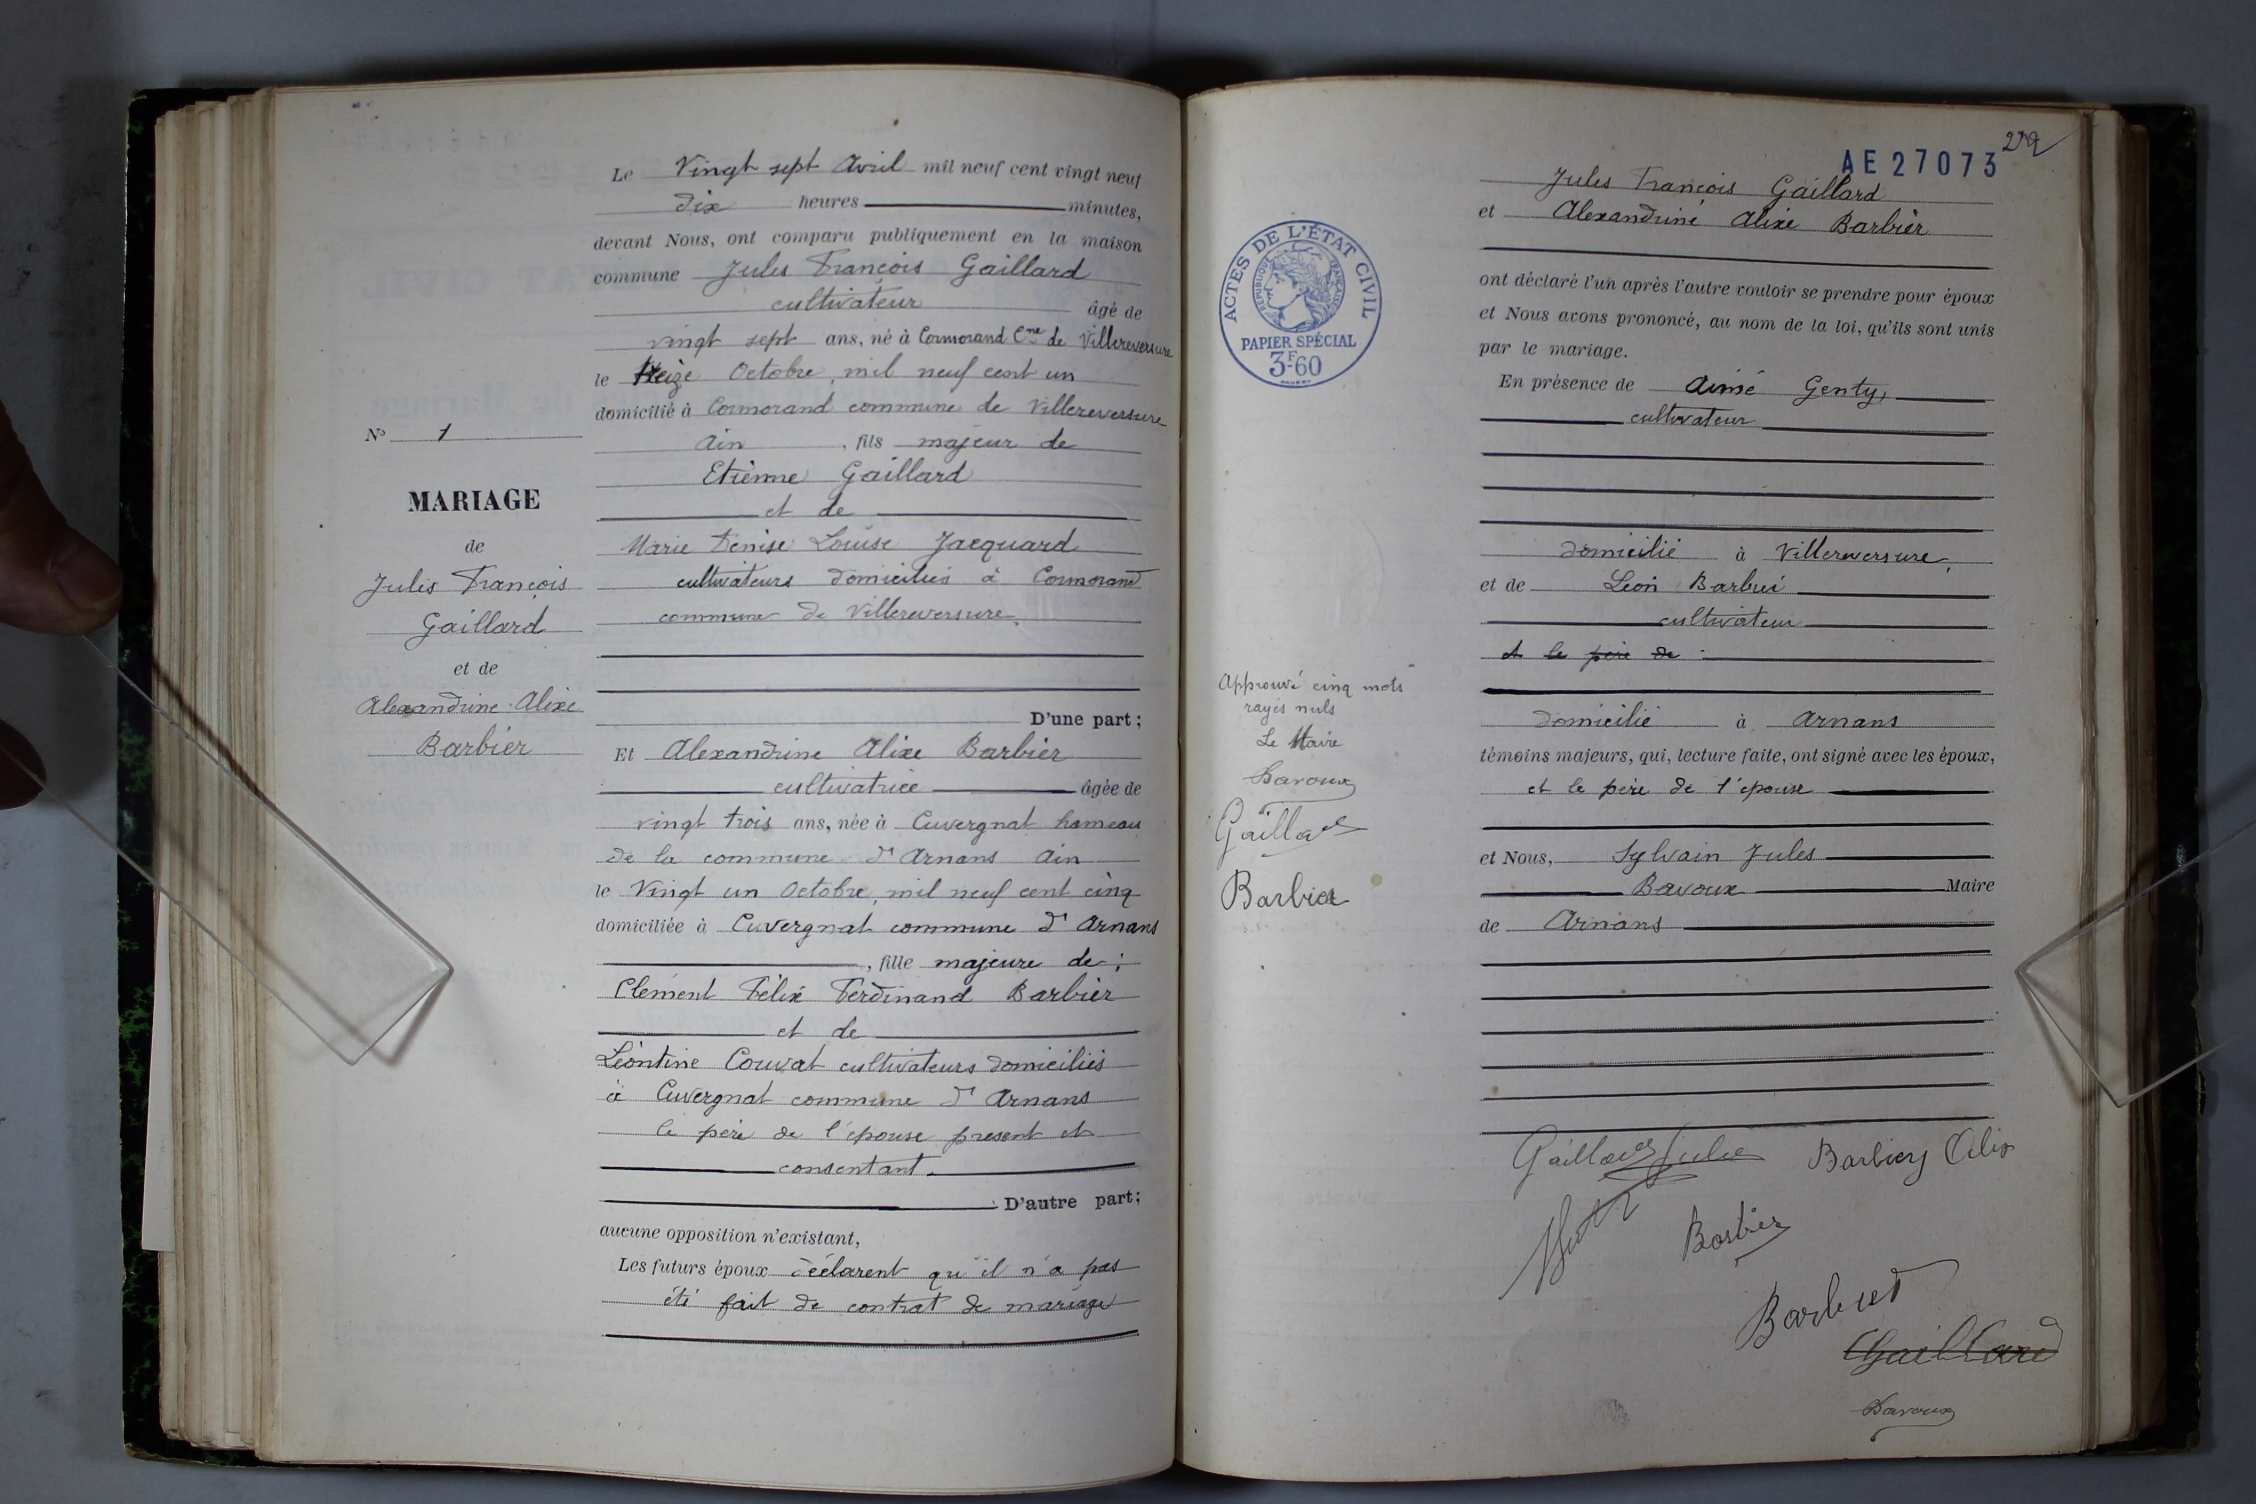 Le Vingt sept Avril mil neuf cent vingt neuf
dix heures minutes,
devant Nous, ont comparu publiquement en la maison
commune Jules François Gaillard
cultivateur âgé de
vingt sept ans, né à Cormorand Cne de Villereversure
le treize Octobre, mil neuf cent un
domicilié à Cormorand commune de Villereversure
Ain, fils majeur de
Etienne Gaillard
et de
Marie Denise Louise Jacquard
cultivateurs domiciliés à Cormorand
commune de Villereversure.
D'une part;
Et Alexandrine Alixe Barbier
cultivatrice âgée de
vingt trois ans, née à Cuvergnat hameau
de la commune d'Arnans Ain
le Vingt un Octobre, mil neuf cent cinq
domiciliée à Cuvergnat commune d'Arnans
, fille majeure de;
Clément Félix Ferdinand Barbier
et de
Léontine Couvat cultivateurs domiciliés
à Cuvergnat commune d'Arnans
le père de l'épouse présent et
consentant.
D'autre part;
aucune opposition n'existant,
Les futurs époux déclarent qu'il n'a pas
été fait de contrat de mariage
No 1
MARIAGE
de
Jules François
Gaillard
et de
Alexandrine Alixe
Barbier
AE 27073
Jules François Gaillard
et Alexandrine Alixe Barbier
ont déclaré l'un après l'autre vouloir se prendre pour époux
et Nous avons prononcé, au nom de la loi, qu'ils sont unis
par le mariage.
En présence de Aimé Genty,
cultivateur
domicilié à Villereversure,
et de Léon Barbui
cultivateur
et le père de
domicilié à Arnans
témoins majeurs, qui, lecture faite, ont signé avec les époux,
et le père de l'épouse
et Nous, Sylvain Jules
Bavoux Maire
de Arnans
ACTES DE L'ÉTAT CIVIL
RÉPUBLIQUE FRANÇAISE
PAPIER SPÉCIAL
3F60
Approuvé cinq mots
rayés nuls
Le Maire
Bavoux
Gaillard
Barbier
Gaillard Jules Barbier Alix
Barbier
Barbuet
Gaillard
Bavoux